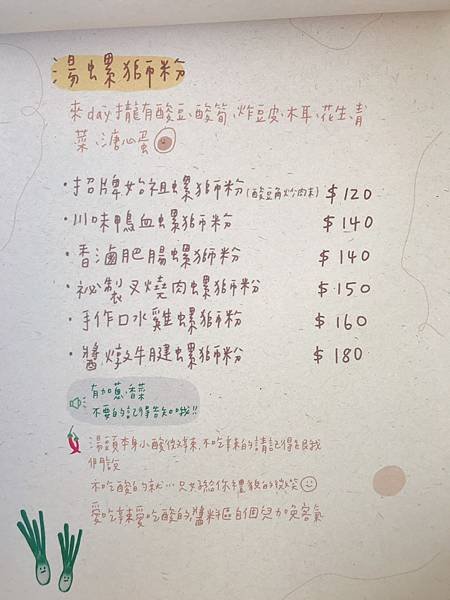 湯螺獅粉
來day攏有酸豆、酸筍、炸豆皮、木耳、花生、青
菜、溏心蛋
·招牌始祖螺獅粉(酸豆角炒肉末) $120
·川味鴨血螺獅粉 $140
·香滷肥腸螺獅粉 $140
·祕製叉燒肉螺獅粉 $150
·手作口水雞螺獅粉 $160
·醬燉牛腱螺獅粉 $180
有加蔥、香菜
不要的記得告知哦!!
湯頭本身小酸微辣,不吃辣的請記得跟我
們說
不吃酸的就…只好給你禮貌的微笑
愛吃辣愛吃酸的,醬料區自個兒加免客氣